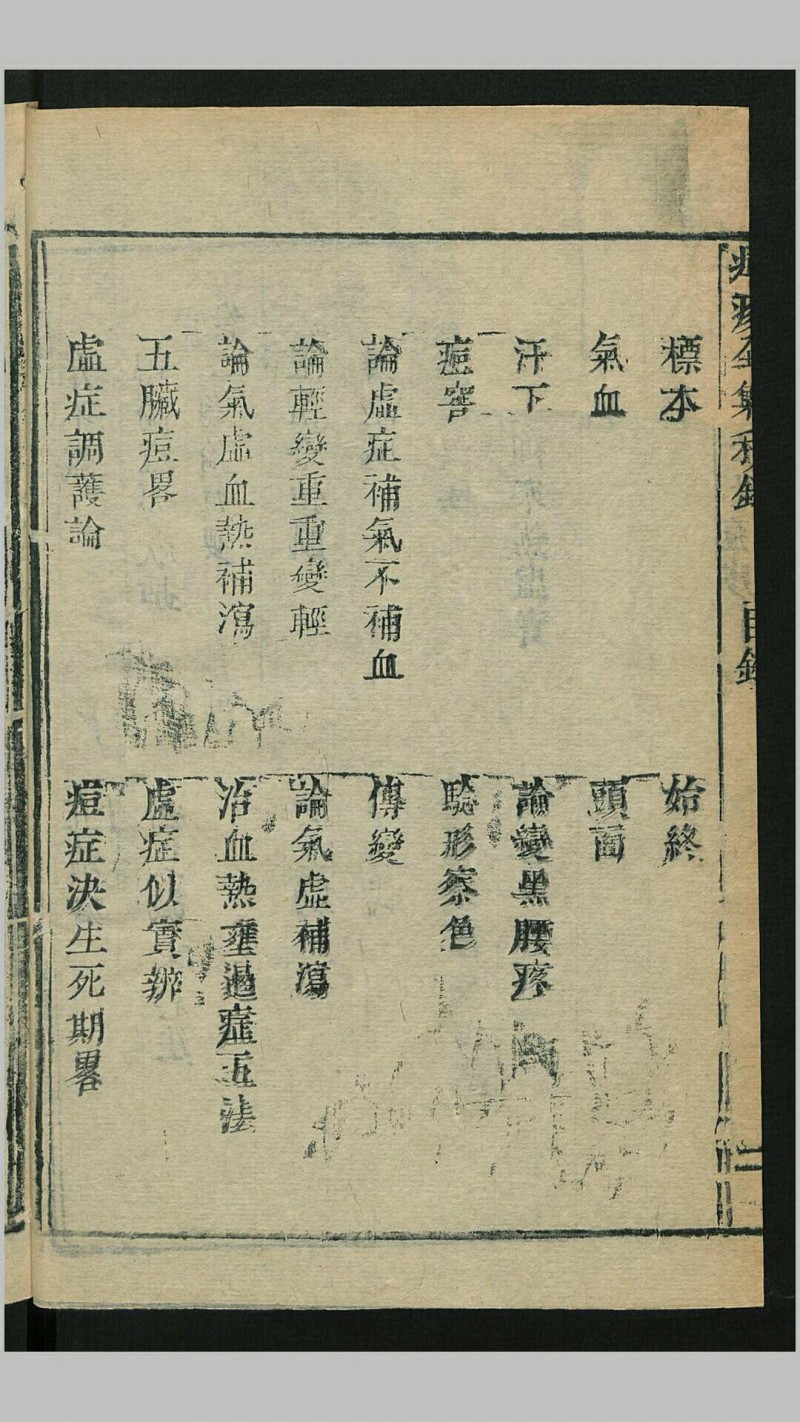 標本
始終
氣血
頭面
汗下
論變黑腰疼
痘害
聽形察色
論虛症補氣不補血
傳變
論輕變重重變輕
論氣虛補瀉
論氣虛血熱補瀉
治血熱壅遏症五法
五臟痘畧
虛症似實辨
虛症調護論
痘症決生死期畧
目錄